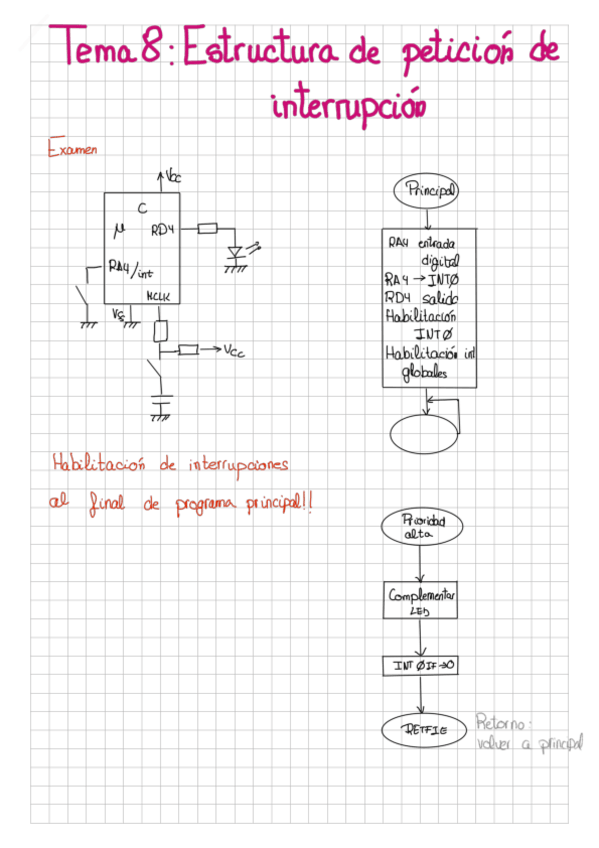 Tema 8: Estructura de petición de
interrupción
Examen
Vcc
μC
RD4
RA4/int
MCLK
Vs
Vcc
Principal
RA4 entrada
digital
RA4 → INTØ
RD4 salida
Habilitación
INTØ
Habilitación int
globales
Habilitación de interrupciones
al final de programa principal!!
Prioridad
alta
Complementar
LED
INTØIF→0
RETFIE
Retorno:
volver a principal